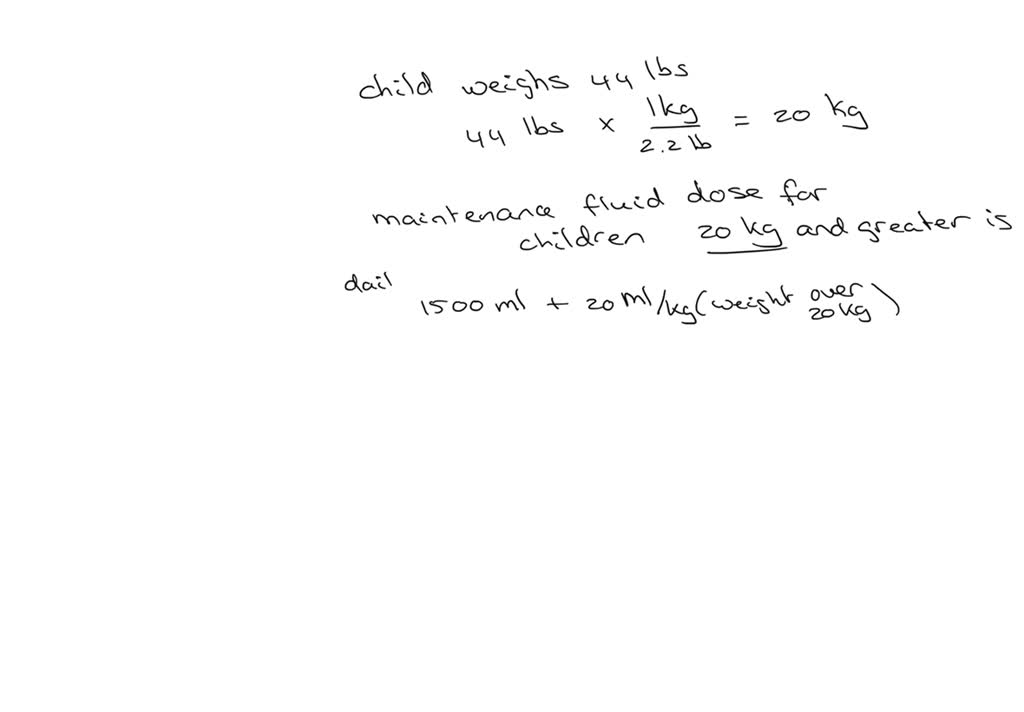 child weighs 44 lbs
44 lbs x 1kg / 2.2 lb = 20 kg
maintenance fluid dose for
children 20 kg and greater is
dail
1500 ml + 20 ml/kg (weight over 20kg)